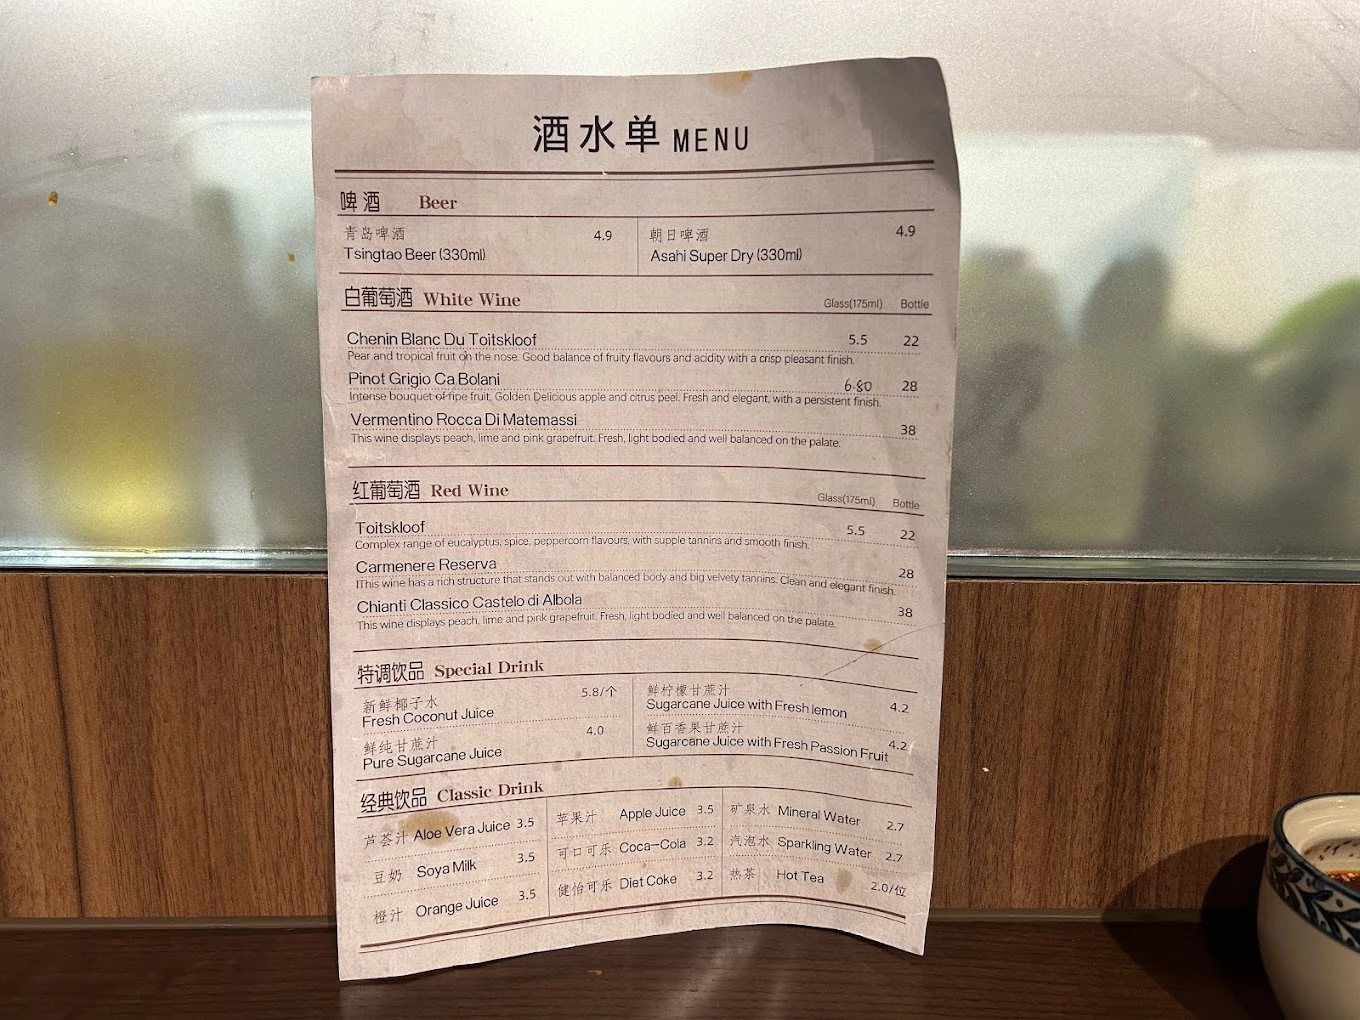 酒水单 MENU
啤酒 Beer
青岛啤酒 4.9
Tsingtao Beer (330ml)
朝日啤酒 4.9
Asahi Super Dry (330ml)
白葡萄酒 White Wine Glass(175ml) Bottle
Chenin Blanc Du Toitskloof 5.5 22
Pear and tropical fruit on the nose. Good balance of fruity flavours and acidity with a crisp pleasant finish.
Pinot Grigio Ca Bolani 6.80 28
Intense bouquet of ripe fruit, Golden Delicious apple and citrus peel. Fresh and elegant, with a persistent finish.
Vermentino Rocca Di Matemassi 38
This wine displays peach, lime and pink grapefruit. Fresh, light bodied and well balanced on the palate.
红葡萄酒 Red Wine Glass(175ml) Bottle
Toitskloof 5.5 22
Complex range of eucalyptus, spice, peppercorn flavours, with supple tannins and smooth finish.
Carmenere Reserva 28
IThis wine has a rich structure that stands out with balanced body and big velvety tannins. Clean and elegant finish.
Chianti Classico Castelo di Albola 38
This wine displays peach, lime and pink grapefruit. Fresh, light bodied and well balanced on the palate.
特调饮品 Special Drink
新鲜椰子水 5.8/个
Fresh Coconut Juice
鲜纯甘蔗汁 4.0
Pure Sugarcane Juice
鲜柠檬甘蔗汁
Sugarcane Juice with Fresh lemon 4.2
鲜百香果甘蔗汁
Sugarcane Juice with Fresh Passion Fruit 4.2
经典饮品 Classic Drink
芦荟汁 Aloe Vera Juice 3.5
豆奶 Soya Milk 3.5
橙汁 Orange Juice 3.5
苹果汁 Apple Juice 3.5
可口可乐 Coca-Cola 3.2
健怡可乐 Diet Coke 3.2
矿泉水 Mineral Water 2.7
汽泡水 Sparkling Water 2.7
热茶 Hot Tea 2.0/位